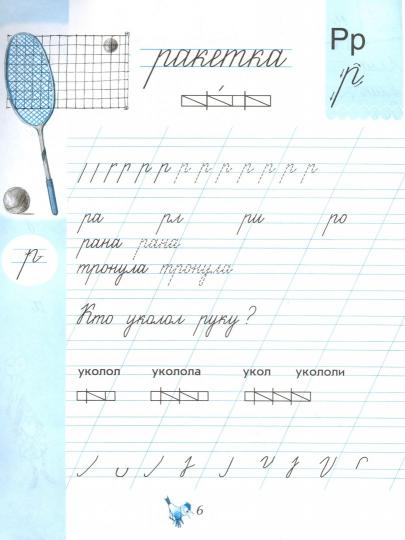 ракетка
Рр
р
р р р р р р р р р р
ра рл ри ро
р
рана рана
тронула тронула
Кто уколол руку?
уколол уколола укол укололи
6